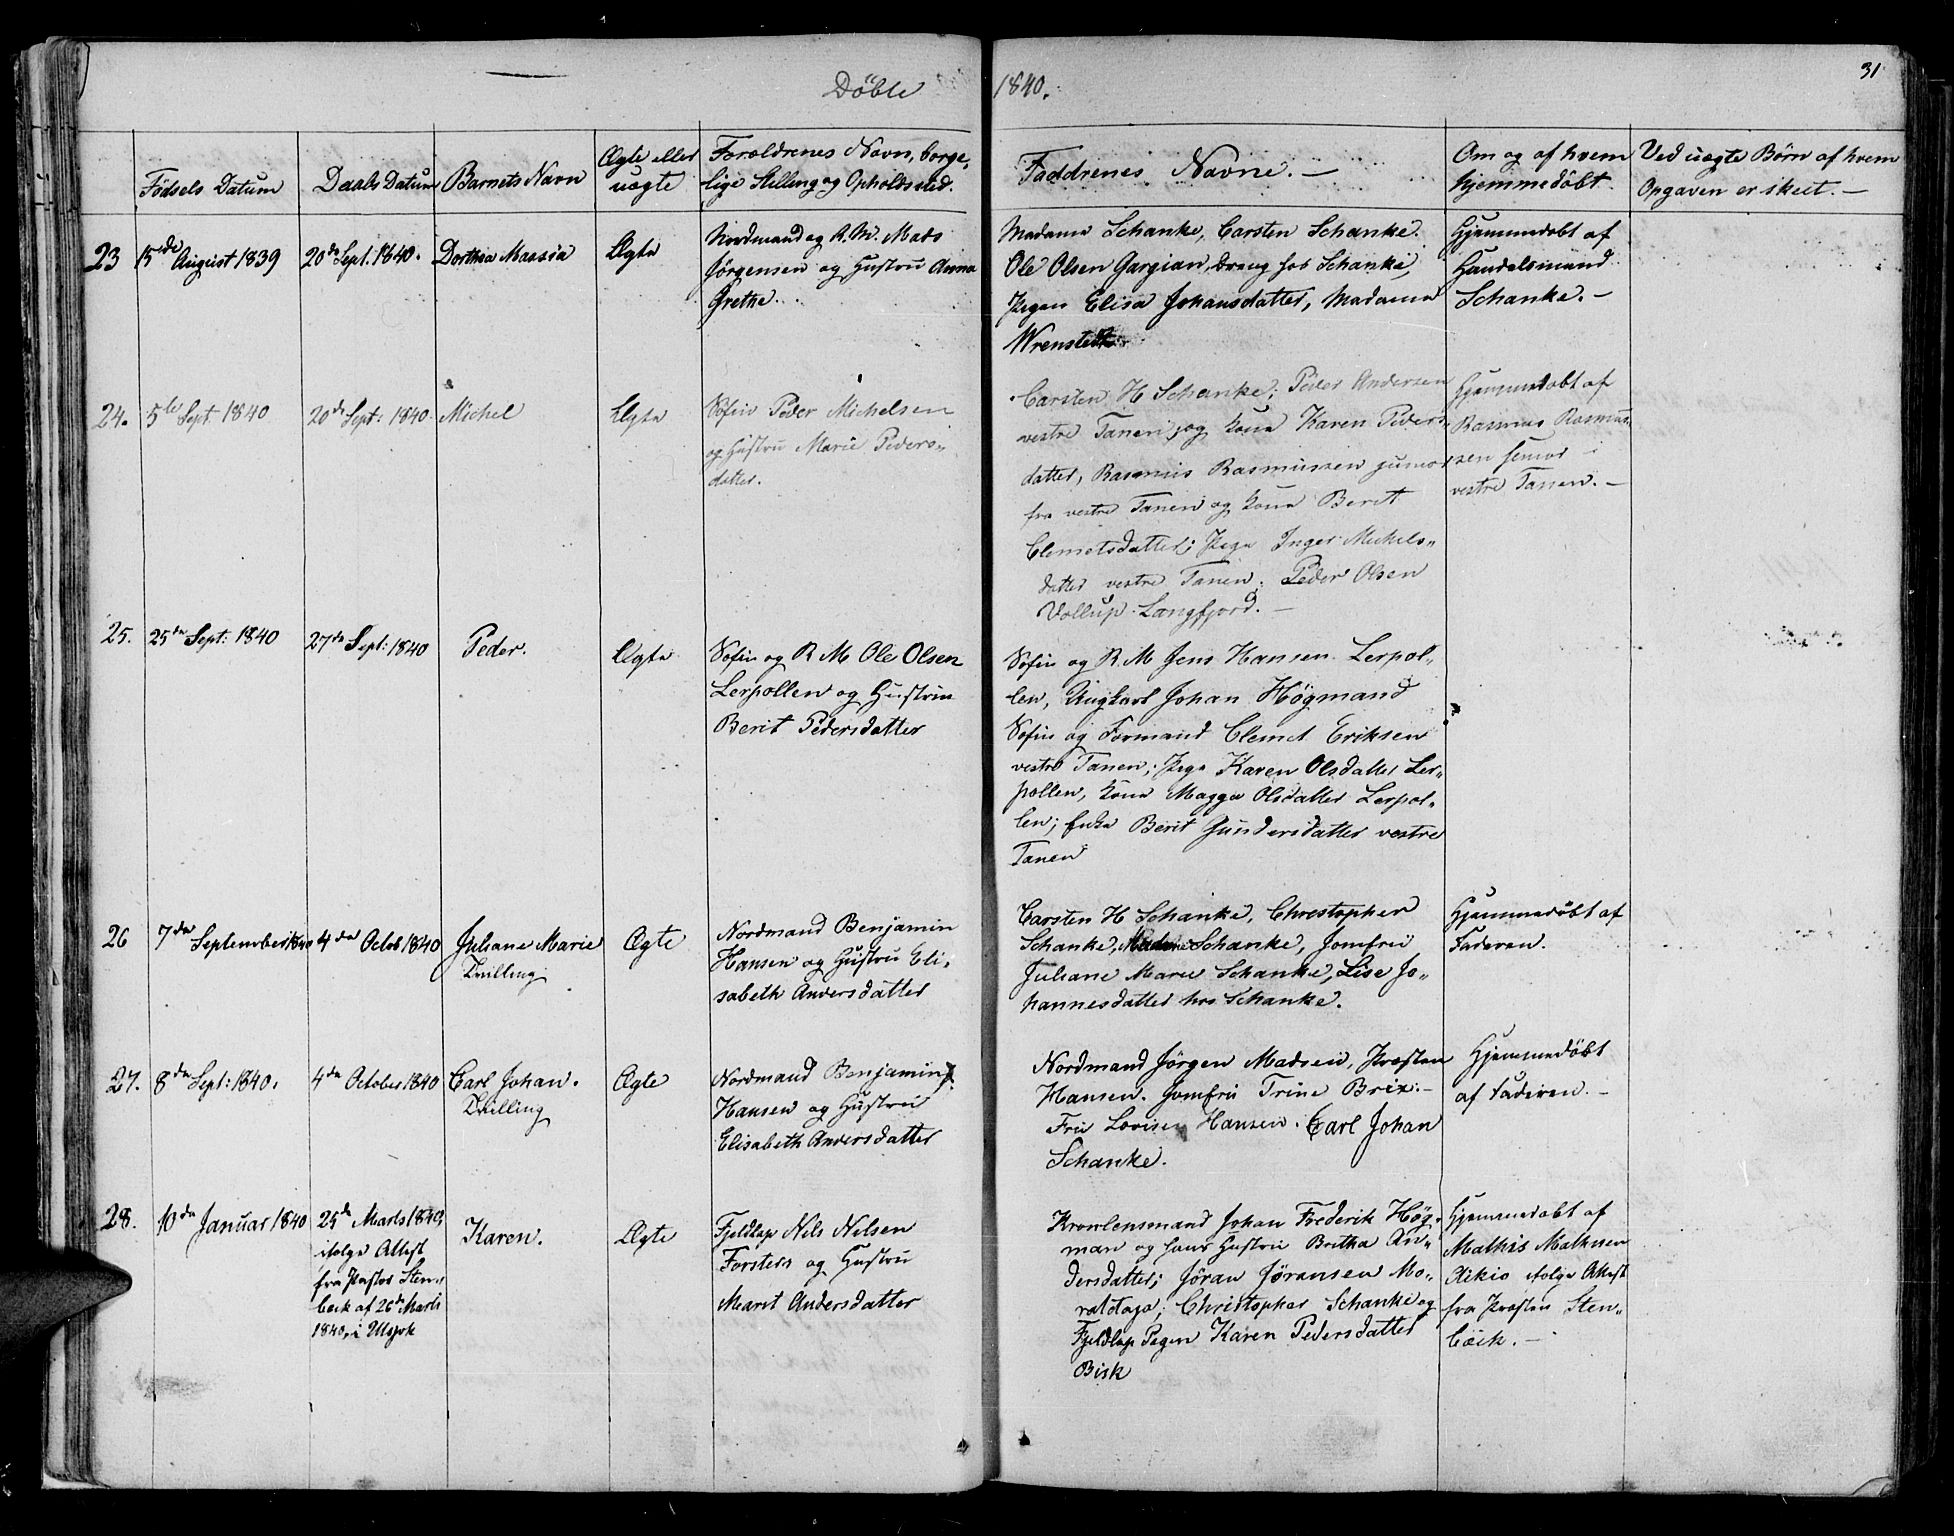 Döbte 1840.
31
Fødsels Datum
Daabs Datum
Barnets Navn
Ægte eller
uægte
Forældrenes Navn, borge,,
lige Stilling og Opholdssted.
Faddrenes Navne. —
Om og af hvem
hjemmedöbt.
Ved uægte Børn af hvem
Opgaven er skeet. —
23
15de August 1839
20de Sept. 1840.
Dorthea Massia
Ægte
Nordmand og R. M. Mads
Jörgensen og Hustru Anna
Grethe.
Madame Schanke, Carsten Schanke.
Ole Olsen Gargian, dreng hos Schanke,
Pigen Elisa Johansdatter, Madame
Wrenstedt
Hjemmedöbt af
Handelsmand
Schanke. —
24.
5te Sept. 1840
20de Sept: 1840
Michel
Ægte
Söfin Peder Michelsen
og Hustru Marie Peders,,
datter.
Carsten H Schanke; Peder Andersen
vestre Tanen og kona Karen Peders,,
datter, Rasmus Rasmussen junior
fra vestre Tanen og kona Berit
Clemetsdatter; Pige Inger Mickels,,
datter vestre Tanen; Peder Olsen
Vollup Langfjord. —
Hjemmedöbt af
Rasmus Rasmus,,
sen senior i
vestre Tanen. —
25.
25de Sept: 1840
27de Sept: 1840
Peder.
Ægte
Söfin og R M Ole Olsen
Lerpollen og Hustrue
Berit Pedersdatter
Söfin og R. M Jens Hansen Lerpol,,
len, Ungkarl Johan Högmand
Söfin og Formand Clemet Eriksen
vestre Tanen; Pige Karen Olsdatter Ler,,
pollen, kona Magga Olsdatter Lerpol,,
len; Enke Berit Gundersdatter vestre
Tanen
26
7de September 1840
4de Octob 1840
Juliane Marie
Tvilling
Ægte
Nordmand Benjamin
Hansen og Hustru Eli,,
sabeth Andersdatter
Carsten H Schanke, Christopher
Schanke, Madame Schanke, Jomfru
Juliane Marie Schanke, Lise Jo,,
hannesdatter hos Schanke.
Hjemmedöbt af
Faderen.
27.
8de Sept: 1840.
4de October 1840
Carl Johan.
Tvilling
Ægte
Nordmand Benjamin
Hansen og Hustru
Elisabeth Andersdatter
Nordmand Jörgen Madsen, Præsten
Hansen. Jomfru Trine Brix. —
Fru Lovise Hansen. Carl Johan
Schanke.
Hjemmedöbt
af Faderen. —
28.
10de Januar 1840
25de Marts 1840,
ifölge Attest
fra Pastor Sten,,
beck af 26de Marts
1840, i Utsjok
Karen.
Ægte
Fjeldlap Nils Nilsen
Forsters og Hustru
Marit Andersdatter
Kronlensmand Johan Frederik Hög,,
man og hans Hustru Britha An,,
dersdatter; Jöran Jöransen Mo,,
ratdaja; Christopher Schanke og
Fjeldlap Pigen Karen Pedersdatter
Bisk
Hjemmedöbt af
Mathis Mathisen
Aikio ifölge Attest
fra Præsten Sten,,
bäck. —